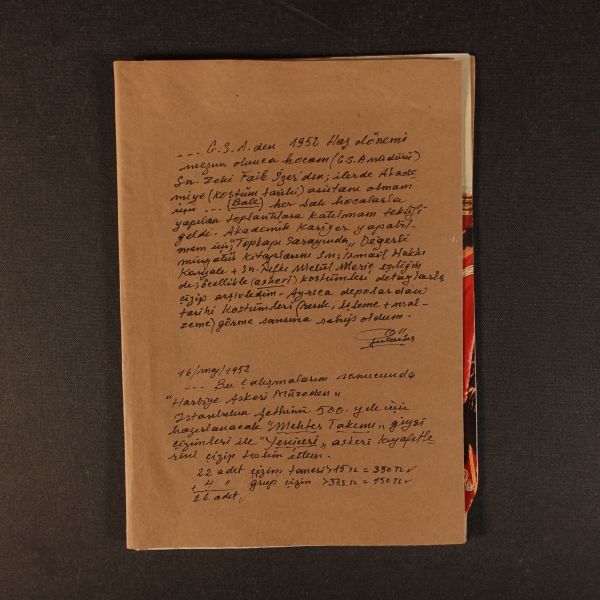 ... G.S.A. den 1952 Haz dönemi
mezun olunca hocam (G.S.A müdürü)
Sn. Zeki Faik İzer'den; ilerde Akade-
miye (kostüm tarihi) asistanı olmam
için ... (Bale) her salı hocalarla
yapılan toplantılara katılmam teklifi
geldi. Akademik kariyer yapabil-
mem için "Topkapı Sarayında" Değerli
minyatür kitaplarını Sn; İsmail Hakkı
+ Sn. Rıfkı Melül Meriç eşliğin
de; özellikle (askeri) kostümleri detaylarla
çizip arşivledim. Ayrıca depolardan
tarihi kostümleri (renk, işleme + mal-
zeme) görme şansına sahip oldum.
16/may/1952
... Bu çalışmalarım sonucunda
"Harbiye Askeri Müzeden"
İstanbulun fethinin 500. yılı için
hazırlanacak "Mehter Takımı" giysi
çizimleri ile "Yeniçeri" askeri kıyafetle
rini çizip teslim ettim.
22 adet çizim tanesi > 15 TL = 330 TL
+ 4 " grup çizim > 37.5 TL = 150 TL
26 adet